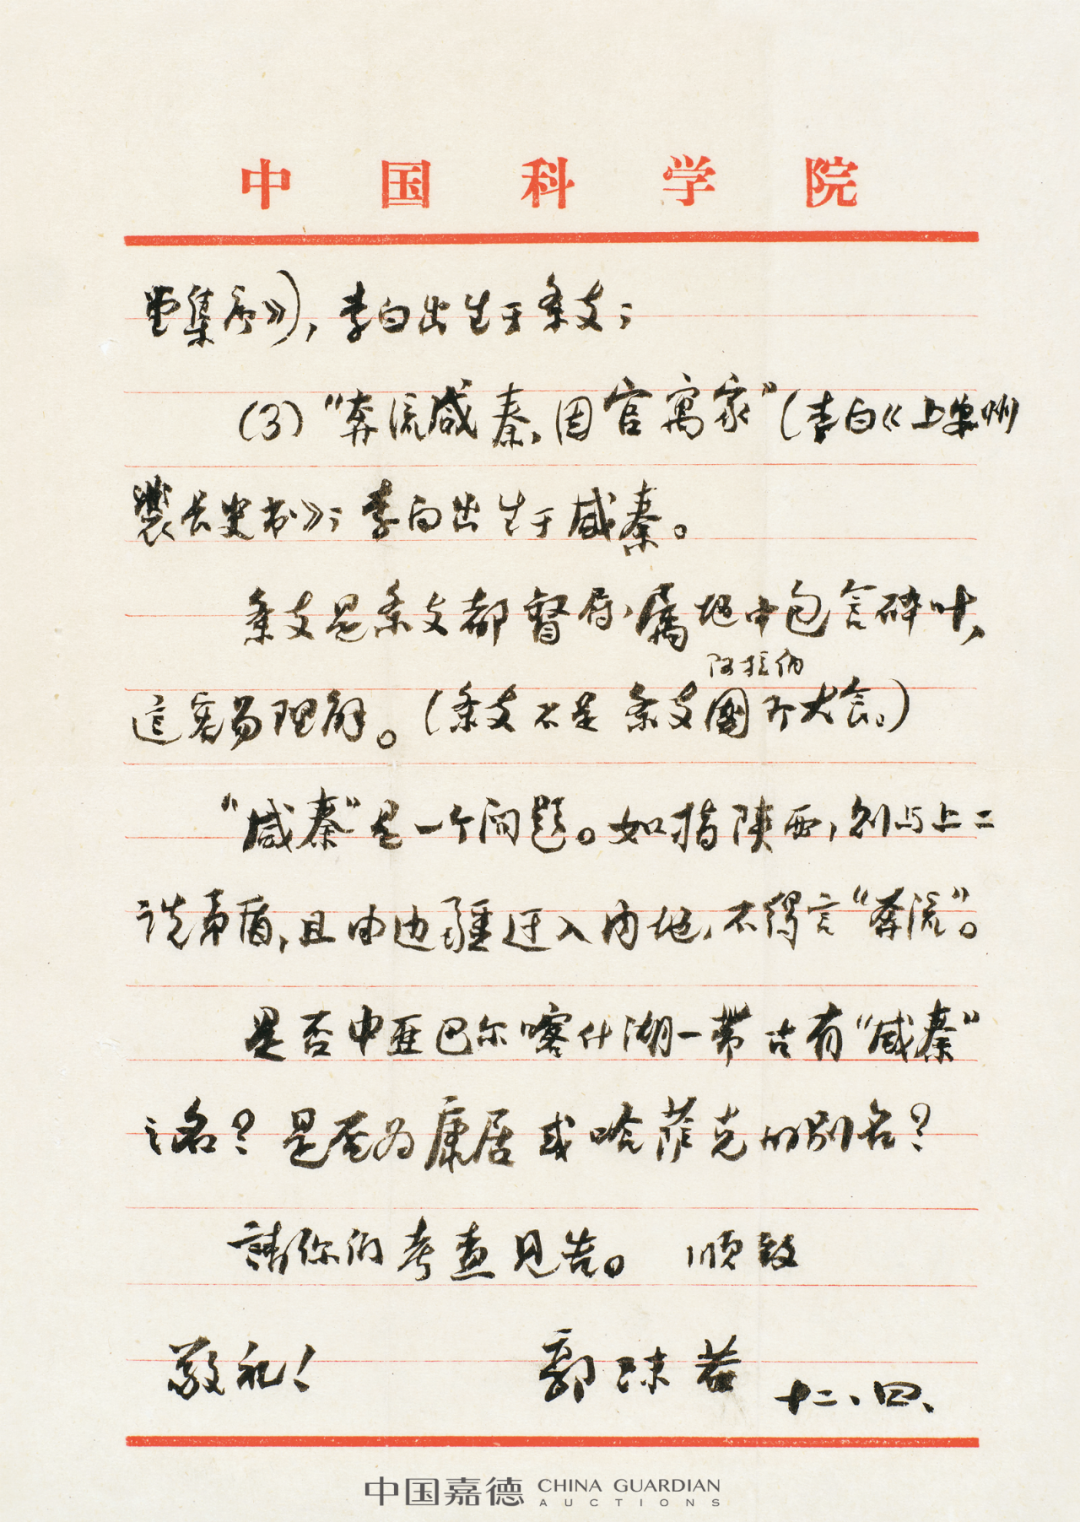 中国科学院
堂集序》），李白出生于条支；
（3）“奔流咸秦，因官寓家”（李白《上安州
裴长史书》；李白出生于咸秦。
条支是条支都督府，属地中包含碎叶，
这容易理解。（条支不是条支國即大食。）
阿拉伯
“咸秦”是一个问题。如指陕西，则与上二
说矛盾，且由边疆迁入内地，不得言“奔流”。
是否中亚巴尔喀什湖一带古有“咸秦”
之名？是否为康居或哈萨克的别名？
請你们考查见告。 顺致
敬礼！ 郭沫若 十二、四、
中国嘉德 CHINA GUARDIAN
AUCTIONS